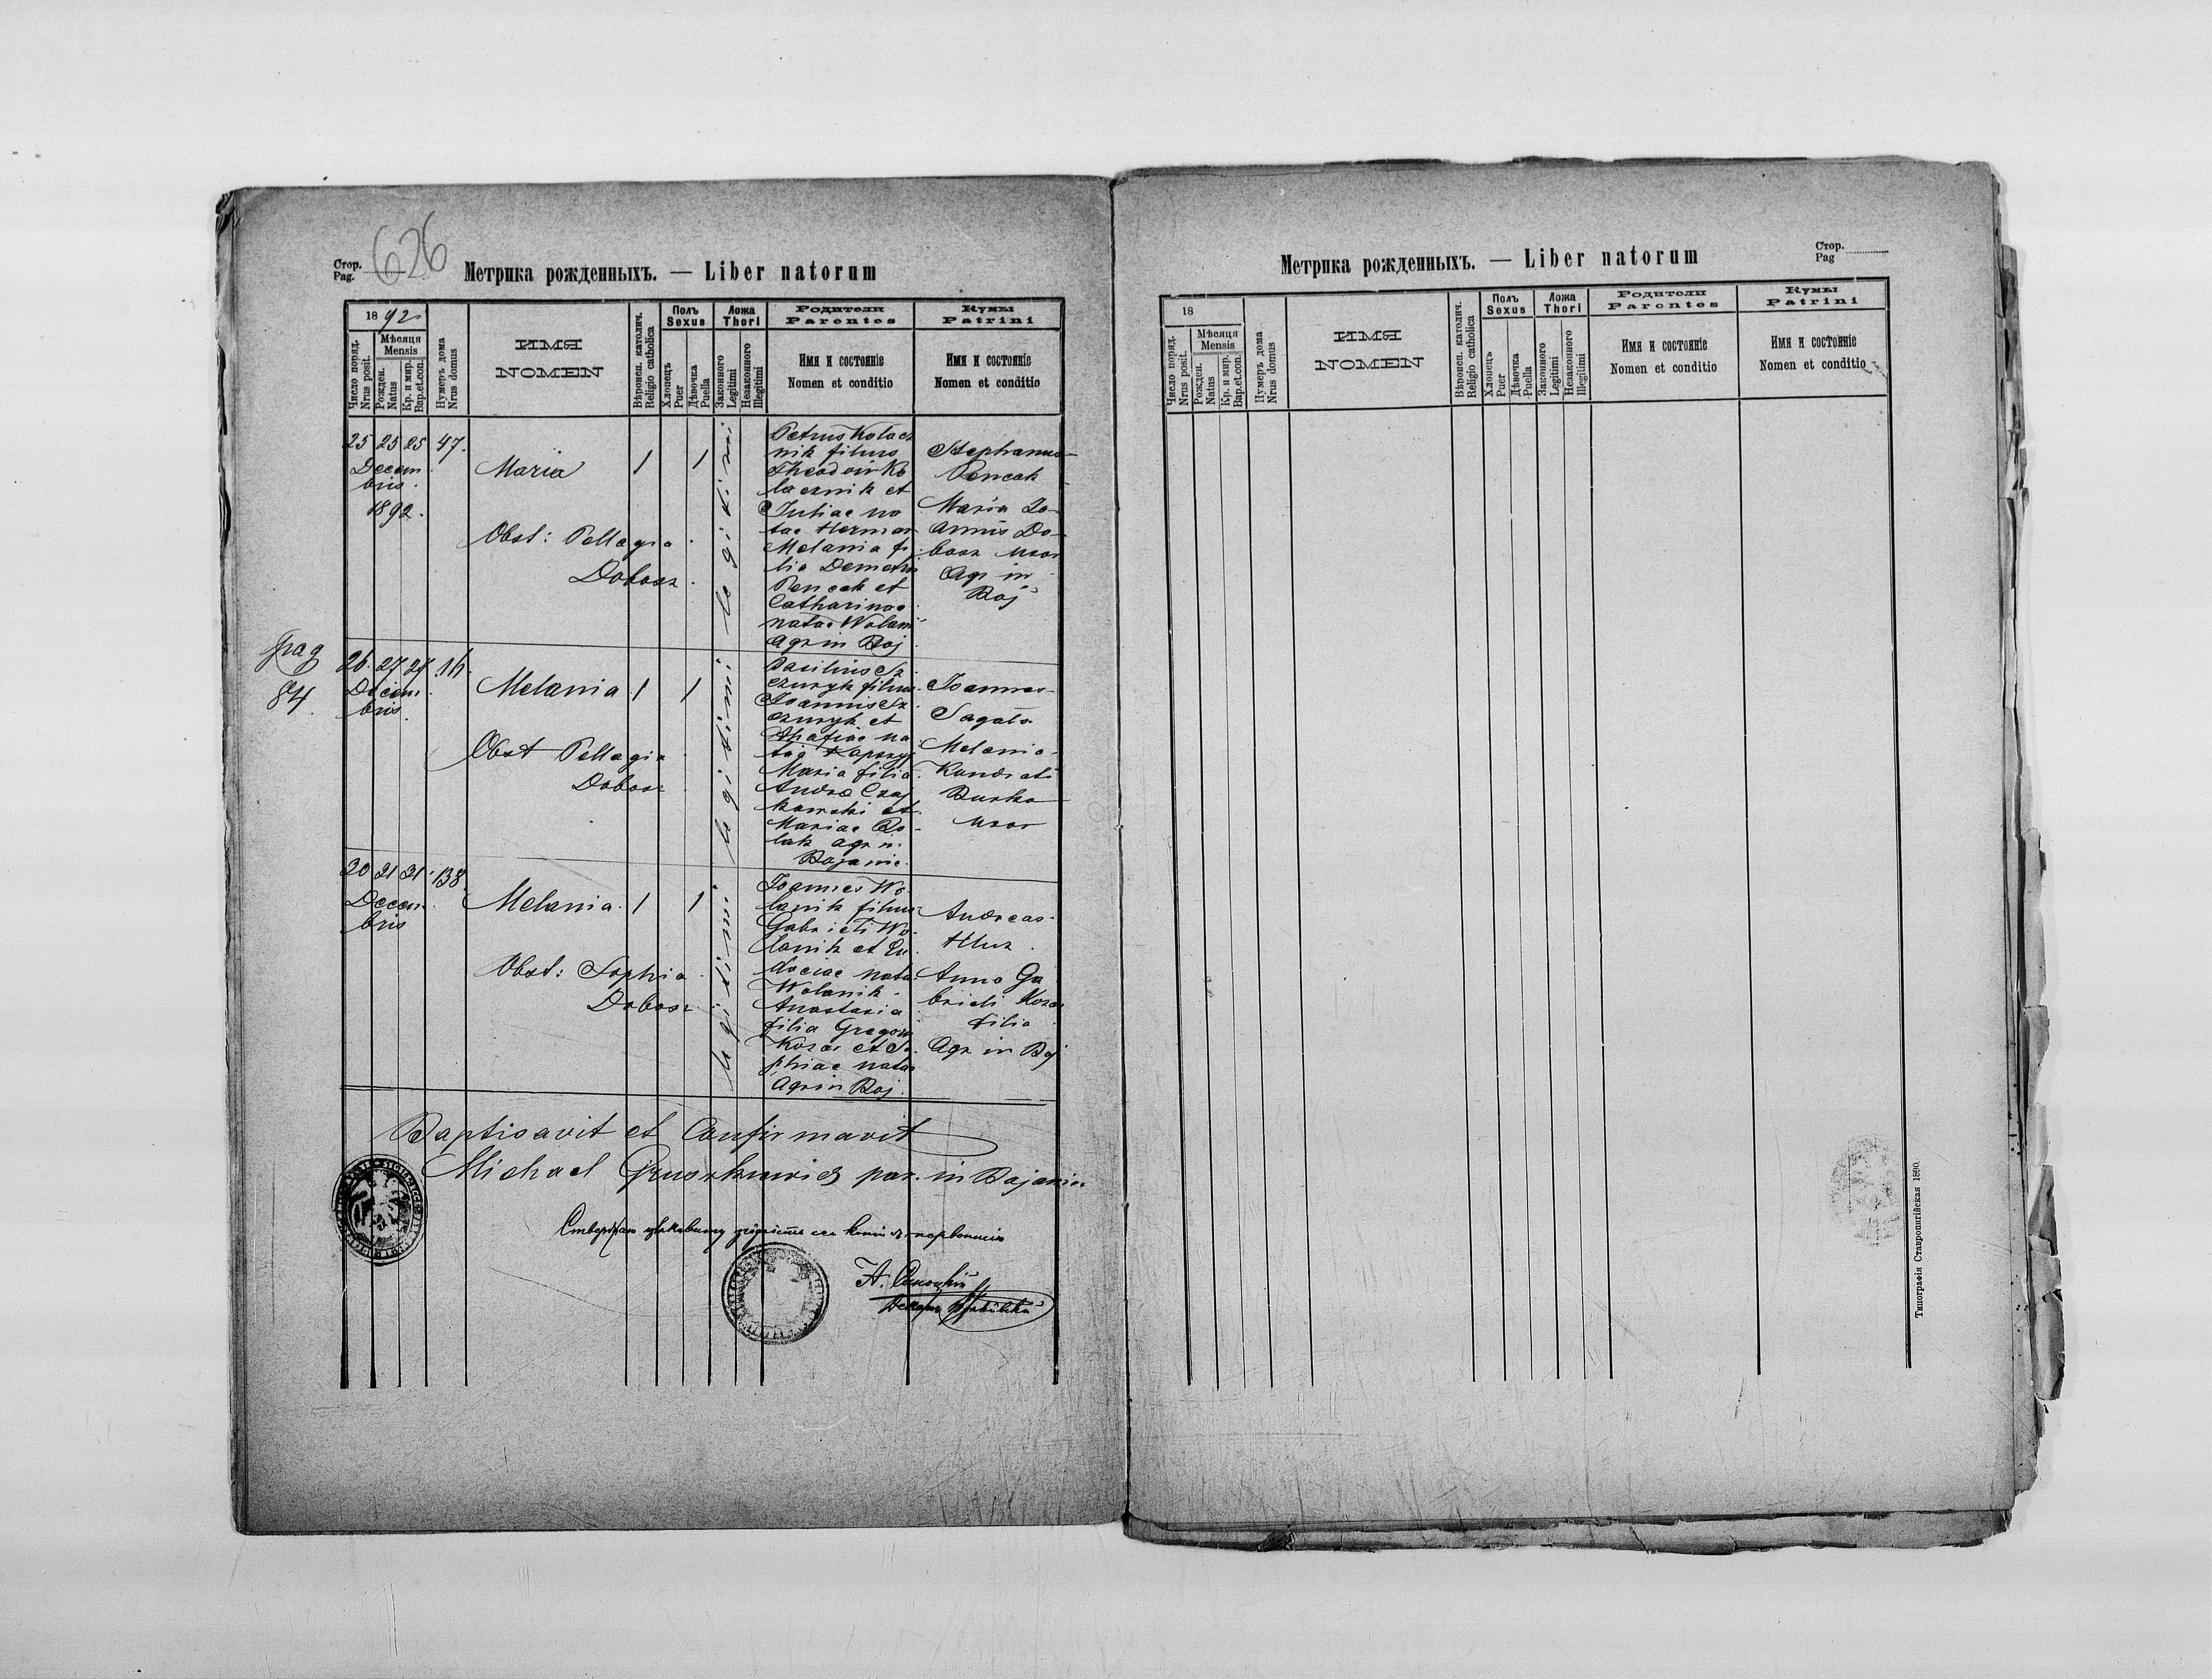 Стор.
Pag.
626
Метрика рожденныхъ. — Liber natorum
1892
Число поряд.
Nrus posit.
Мѣсяця
Mensis
Рожден.
Natus
Кр. и мир.
Bap.et.con.
Нумеръ дома
Nrus domus
ИМЯ
NOMEN
Вѣроисп. католич.
Religio catholica
Полъ
Sexus
Хлопецъ
Puer
Дѣвочка
Puella
Ложа
Thori
Законного
Legitimi
Незаконного
Illegitimi
Родители
Parentes
Имя и состоянiе
Nomen et conditio
Кумы
Patrini
Имя и состоянiе
Nomen et conditio
25 25 25 47.
Decem
bris.
1892.
Maria
1 1
legitimi
Obst: Pellagia
Dobosz.
Petrus Kolacz
nik filius
Theodori Ko
lacznik et
Juliae na
tae Herman
Melania fi
lia Demetri
Pencak et
Catharinae
natae Wolani
Agr in Boj
Stephanus
Pencak
Maria Jo-
annis Do-
bosz uxor
Agr in
Boj
pag
84.
26. 27 27 16.
Decem
bris.
Melania 1 1
legitimi
Obst Pellagia
Dobosz
Basilius Sz
czuryk filius
Joannis Sz
czuryk et
na
tae
Maria filia
Andre Czaj
kowski et
Mariae Po-
lak agr in
Bojanic.
Joannes
Sagats
Melania
Kundrati
Burko
uxor
30 31 31 138.
Decem
bris
Melania. 1 1
legitimi
Obst: Sophia
Dobosz
Joannes Wo-
lanik filius
Gabrieli Wo-
lanik et Eu
dociae nata
Wolanik.
Anastasia
filia Gregori
Kozar et So-
phiae natae
Agr in Boj.
Andreas
Anna Ga
brieli Kozar
filia
Agr in Boj
Baptisavit et Confirmavit
Michael par. in Bojanic
А.
Метрика рожденныхъ. — Liber natorum
Стор.
Pag
18
Число поряд.
Nrus posit.
Мѣсяця
Mensis
Рожден.
Natus
Кр. и мир.
Bap.et.con.
Нумеръ дома
Nrus domus
ИМЯ
NOMEN
Вѣроисп. католич.
Religio catholica
Полъ
Sexus
Хлопецъ
Puer
Дѣвочка
Puella
Ложа
Thori
Законного
Legitimi
Незаконного
Illegitimi
Родители
Parentes
Имя и состоянiе
Nomen et conditio
Кумы
Patrini
Имя и состоянiе
Nomen et conditio
Типографія Ставропигійская 1890.